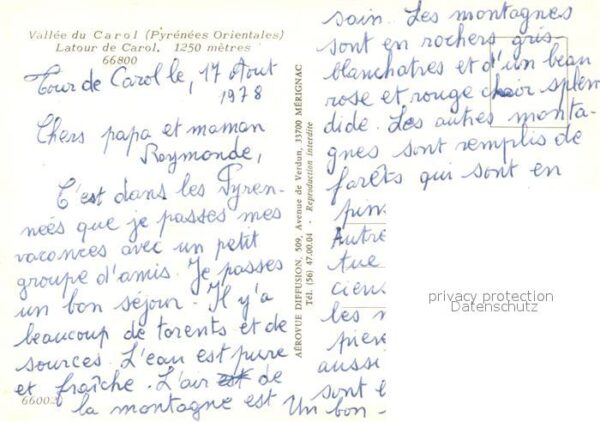 Vallée du Carol (Pyrénées Orientales)
Latour de Carol. 1250 mètres
66800
Tour de Carol le, 17 Août
1978
Chers papa et maman
Raymonde,
C'est dans les Pyren-
nées que je passes mes
vacances avec un petit
groupe d'amis. Je passes
un bon séjour. Il y'a
beaucoup de torents et de
sources. L'eau est pure
et fraîche. L'air est de
la montagne est
6600
AÉROVUE DIFFUSION, 509, Avenue de Verdun, 33700 MÉRIGNAC
Tél. (56) 47.00.04 - Reproduction interdite
sain. Les montagnes
sont en rochers gris-
blanchatres et d'un beau
rose et rouge chair splen
dide. Les autres monta-
gnes sont remplis de
farêts qui sont en
pins
Autre
tue
ciens
les m
pierr
aussi
sont
Un bon -
privacy protection
Datenschutz